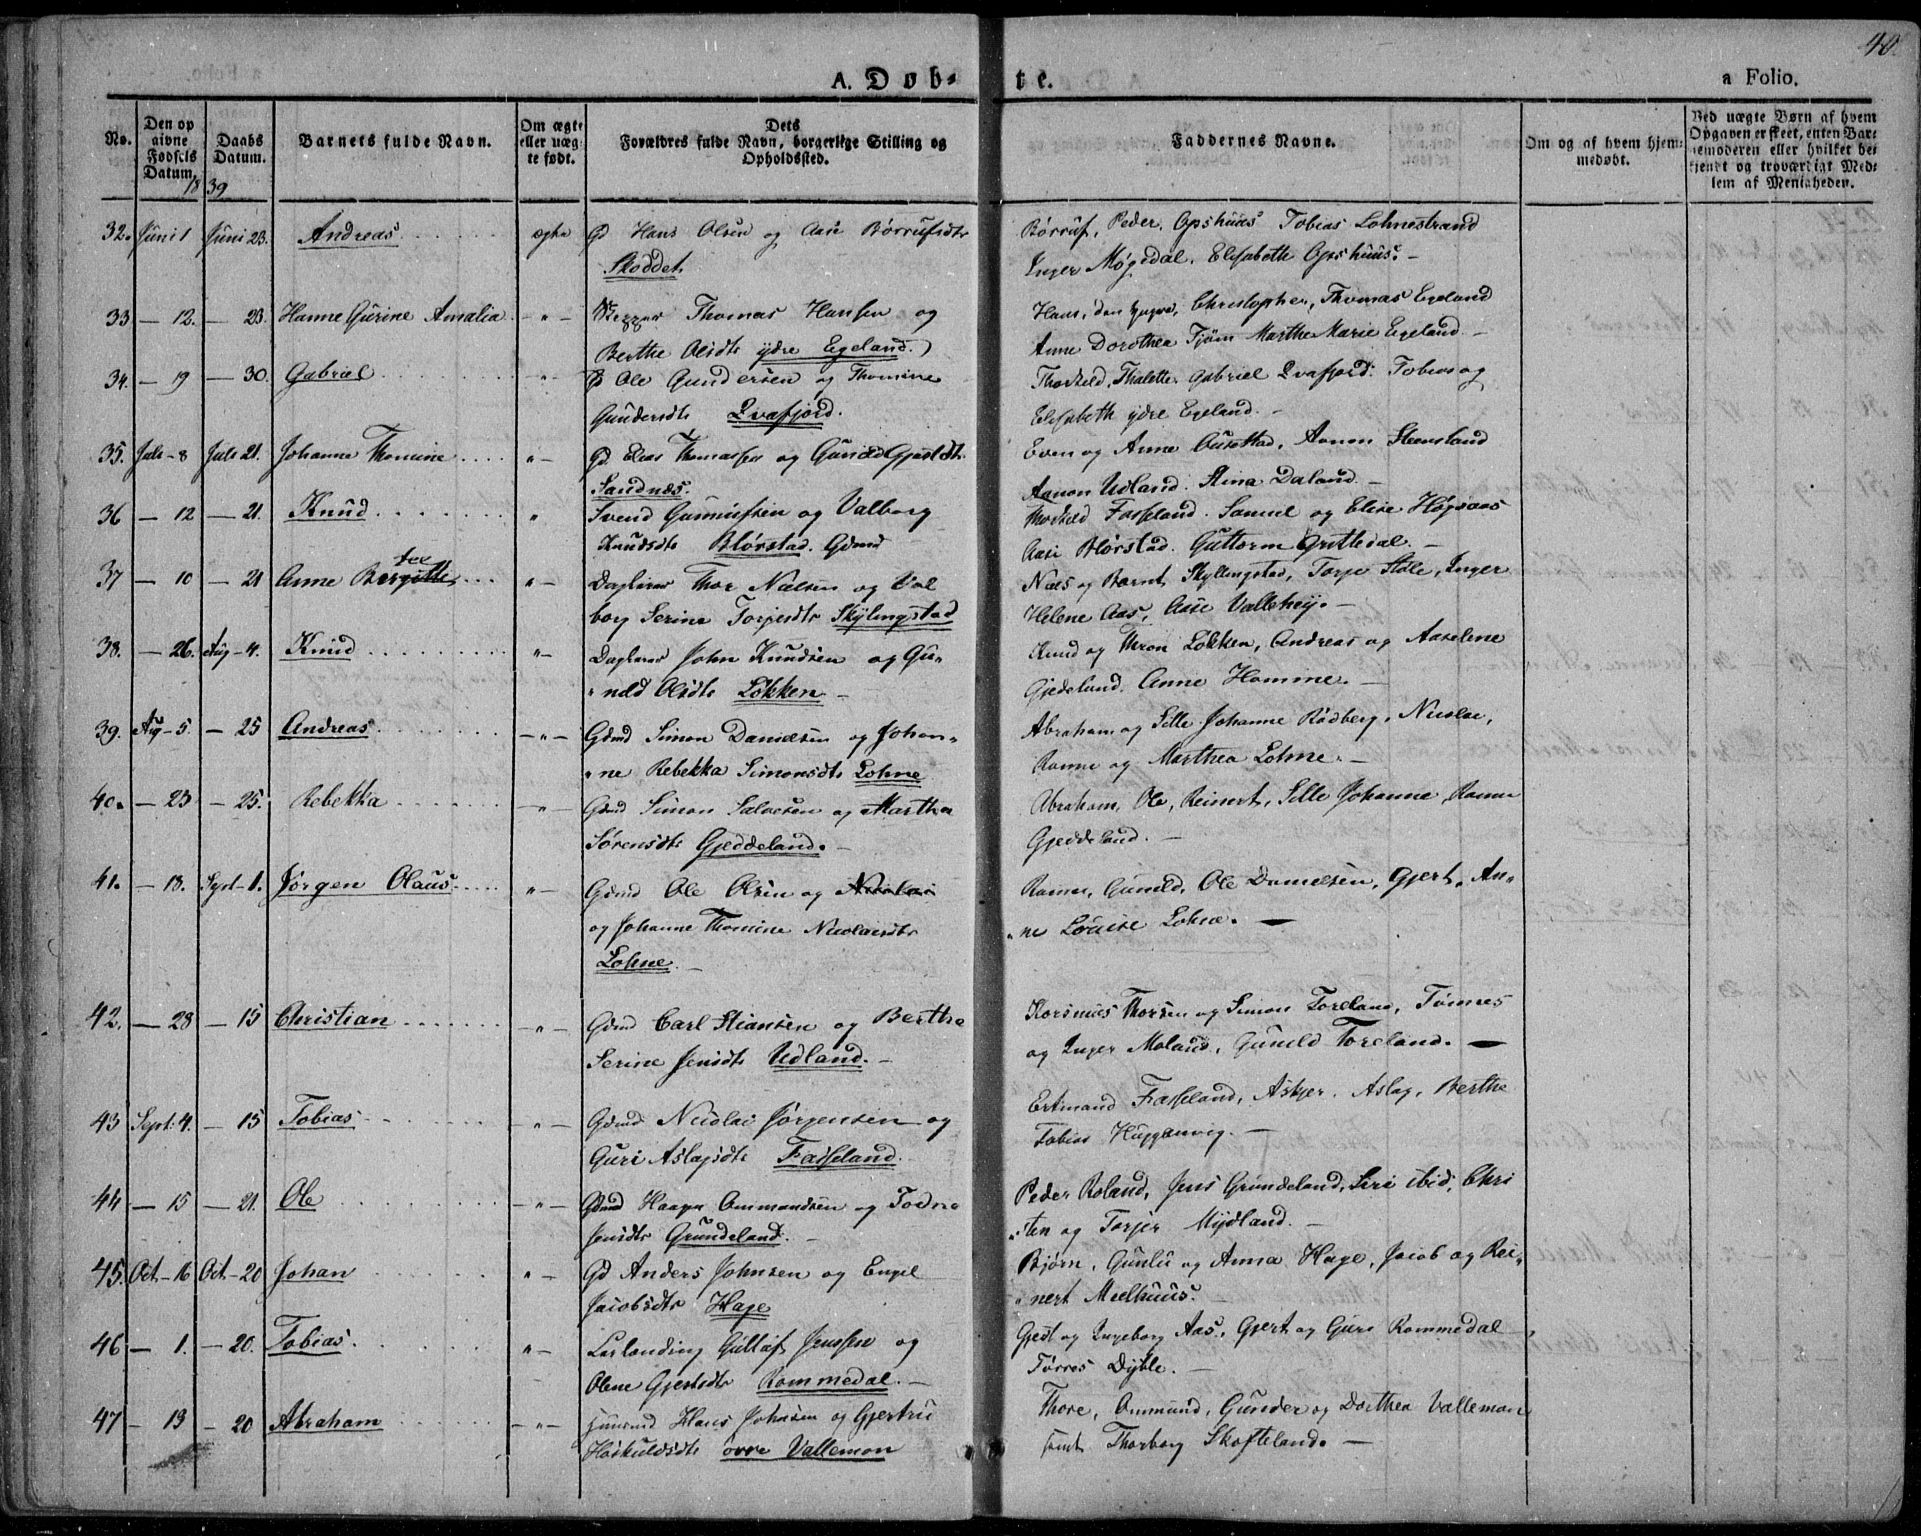 40.
A. Døb-te.
a Folio.
No.
Den op
givne
Fødsels
Datum.
Daabs
Datum.
Barnets fulde Navn.
Om ægte
eller uæg-
te født.
Dets
Forældres fulde Navn, borgerlige Stilling og
Opholdssted.
Faddernes Navne.
Om og af hvem hjem-
medøbt.
Ved uægte Børn af hvem
Opgaven er skeet, enten Bar-
nemoderen eller hvilket be-
kjendt og troværdigt Med-
lem af Menigheden.
18 39
32. Juni 1 Juni 23. Andreas ægte Gd Hans Olsen og Aase Børrufsdtr
Skoddet.
Børruf, Peder Opshuus Tobias Lohnestrand
Inger Møgedal. Elisabeth Opshuus. -
33 - 12. - 23. Hanne Gurine Amalia - " - Thomas Hansen og
Berthe Olsdtr ydre Egeland.
Hans, den yngre, Christopher, Thomas Egeland
Anne Dorothea Tjøm Marthe Marie Egeland. -
34. - 19 - 30. Gabriel " - Gd Ole Gundersen og Thomine
Gundersdtr Qvafjord.
Thorkild, Thalette, Gabriel Qvafjord. Tobias og
Elisabeth ydre Egeland. -
35. Juli - 8 Juli 21. Johanne Thomine " - Gd Elias Thomassen og Guneld Gjestdtr.
Sandnæs.
Even og Anne Ousestad, Aanon Steensland
Aanon Udland. Stina Daland. -
36 - 12 - 21. Knud " Svend Gunnufsen og Valborg
Knudsdtr Blørstad. Gdmd
Thorkild Fasseland. Samuel og Elise Høgsaas
Aase Blørstad. Guttorm Grittedal. -
37 - 10 - 21 Anne Bergitte " - Daglejer Thor Nielsen og Val
borg Serine Torjesdtr Skylingstad
Næs og Bernt Skyllingstad, Torje Støle, Inger
Helene Aas, Aase Vallehey. -
38. - 26. Aug - 4. Knud " - Daglejer John Knudsen og Gu-
" neld Olsdtr Løkken -
Knud og Thron Løkken, Andreas og Aaselene
Gjedeland. Anne Homme. -
39. Aug - 5 - 25 Andreas - " - Gdmd Simon Danielsen og Johan-
" ne Rebekka Simonsdtr Lohne
Abraham og Sille Johanne Rødberg, Nicolai,
Ranne og Marthea Lohne. -
40. - 23 - 25. Rebekka - " - Gdmd Simon Salvesen og Marthea
Sørensdtr Gjeddeland. -
Abraham, Ole, Reinert, Sille Johanne, Ranne
Gjeddeland. -
41. - 18. Sept - 1. Jørgen Olaus " - Gdmd Ole Olsen og Nicolai
og Johanne Thomine Nicolaisdtr
Lohne -
Ranne, Guneld, Ole Danielsen, Gjert, An-
" ne Louise Lohne. -
42. - 28 - 15 Christian - " - Gdmd Carl Stiansen og Berthe
Serine Jensdtr Udland. -
Korsmus Thorsen og Simon Foreland, Tønnes
og Inger Moland, Guneld Foreland. -
43 Sept: 4. - 15 Tobias - " - Gdmd Nicolai Jørgensen og
Guri Aslagsdtr Fasseland.
Ertmand Fasseland, Askjer. Aslag, Berthe
Tobias Huggenvig. -
44 - 15 - 21. Ole - " - Gdmd Haagen Ommundsen og Todne
Jensdtr Grundeland. -
Peder Roland, Jens Grundeland, Siri ibid, Chri
" sten og Torjer Mydland. -
45. Oct. - 16 Oct - 20 Johan " - Gd Anders Johnsen og Engel
Jacobsdtr Hage
Bjørn, Gunlu og Anna Hage, Jacob og Rei-
" nert Meelhuus.
46 - 1. - 20. Tobias. " - Gullaf Jenssen og
Olene Gjestsdtr Rommedal. -
Gjest og Ingeborg Aas, Gjert og Guri Rommedal
Tørres Dyble. -
47 - 13 - 20 Abraham - " - Huusmd Hans Johnsen og Gjertru
Høskuldsdtr øvre Vallemon
Thore, Ommund, Gunder og Dorthea Vallemon
samt Thorborg Skofteland. -